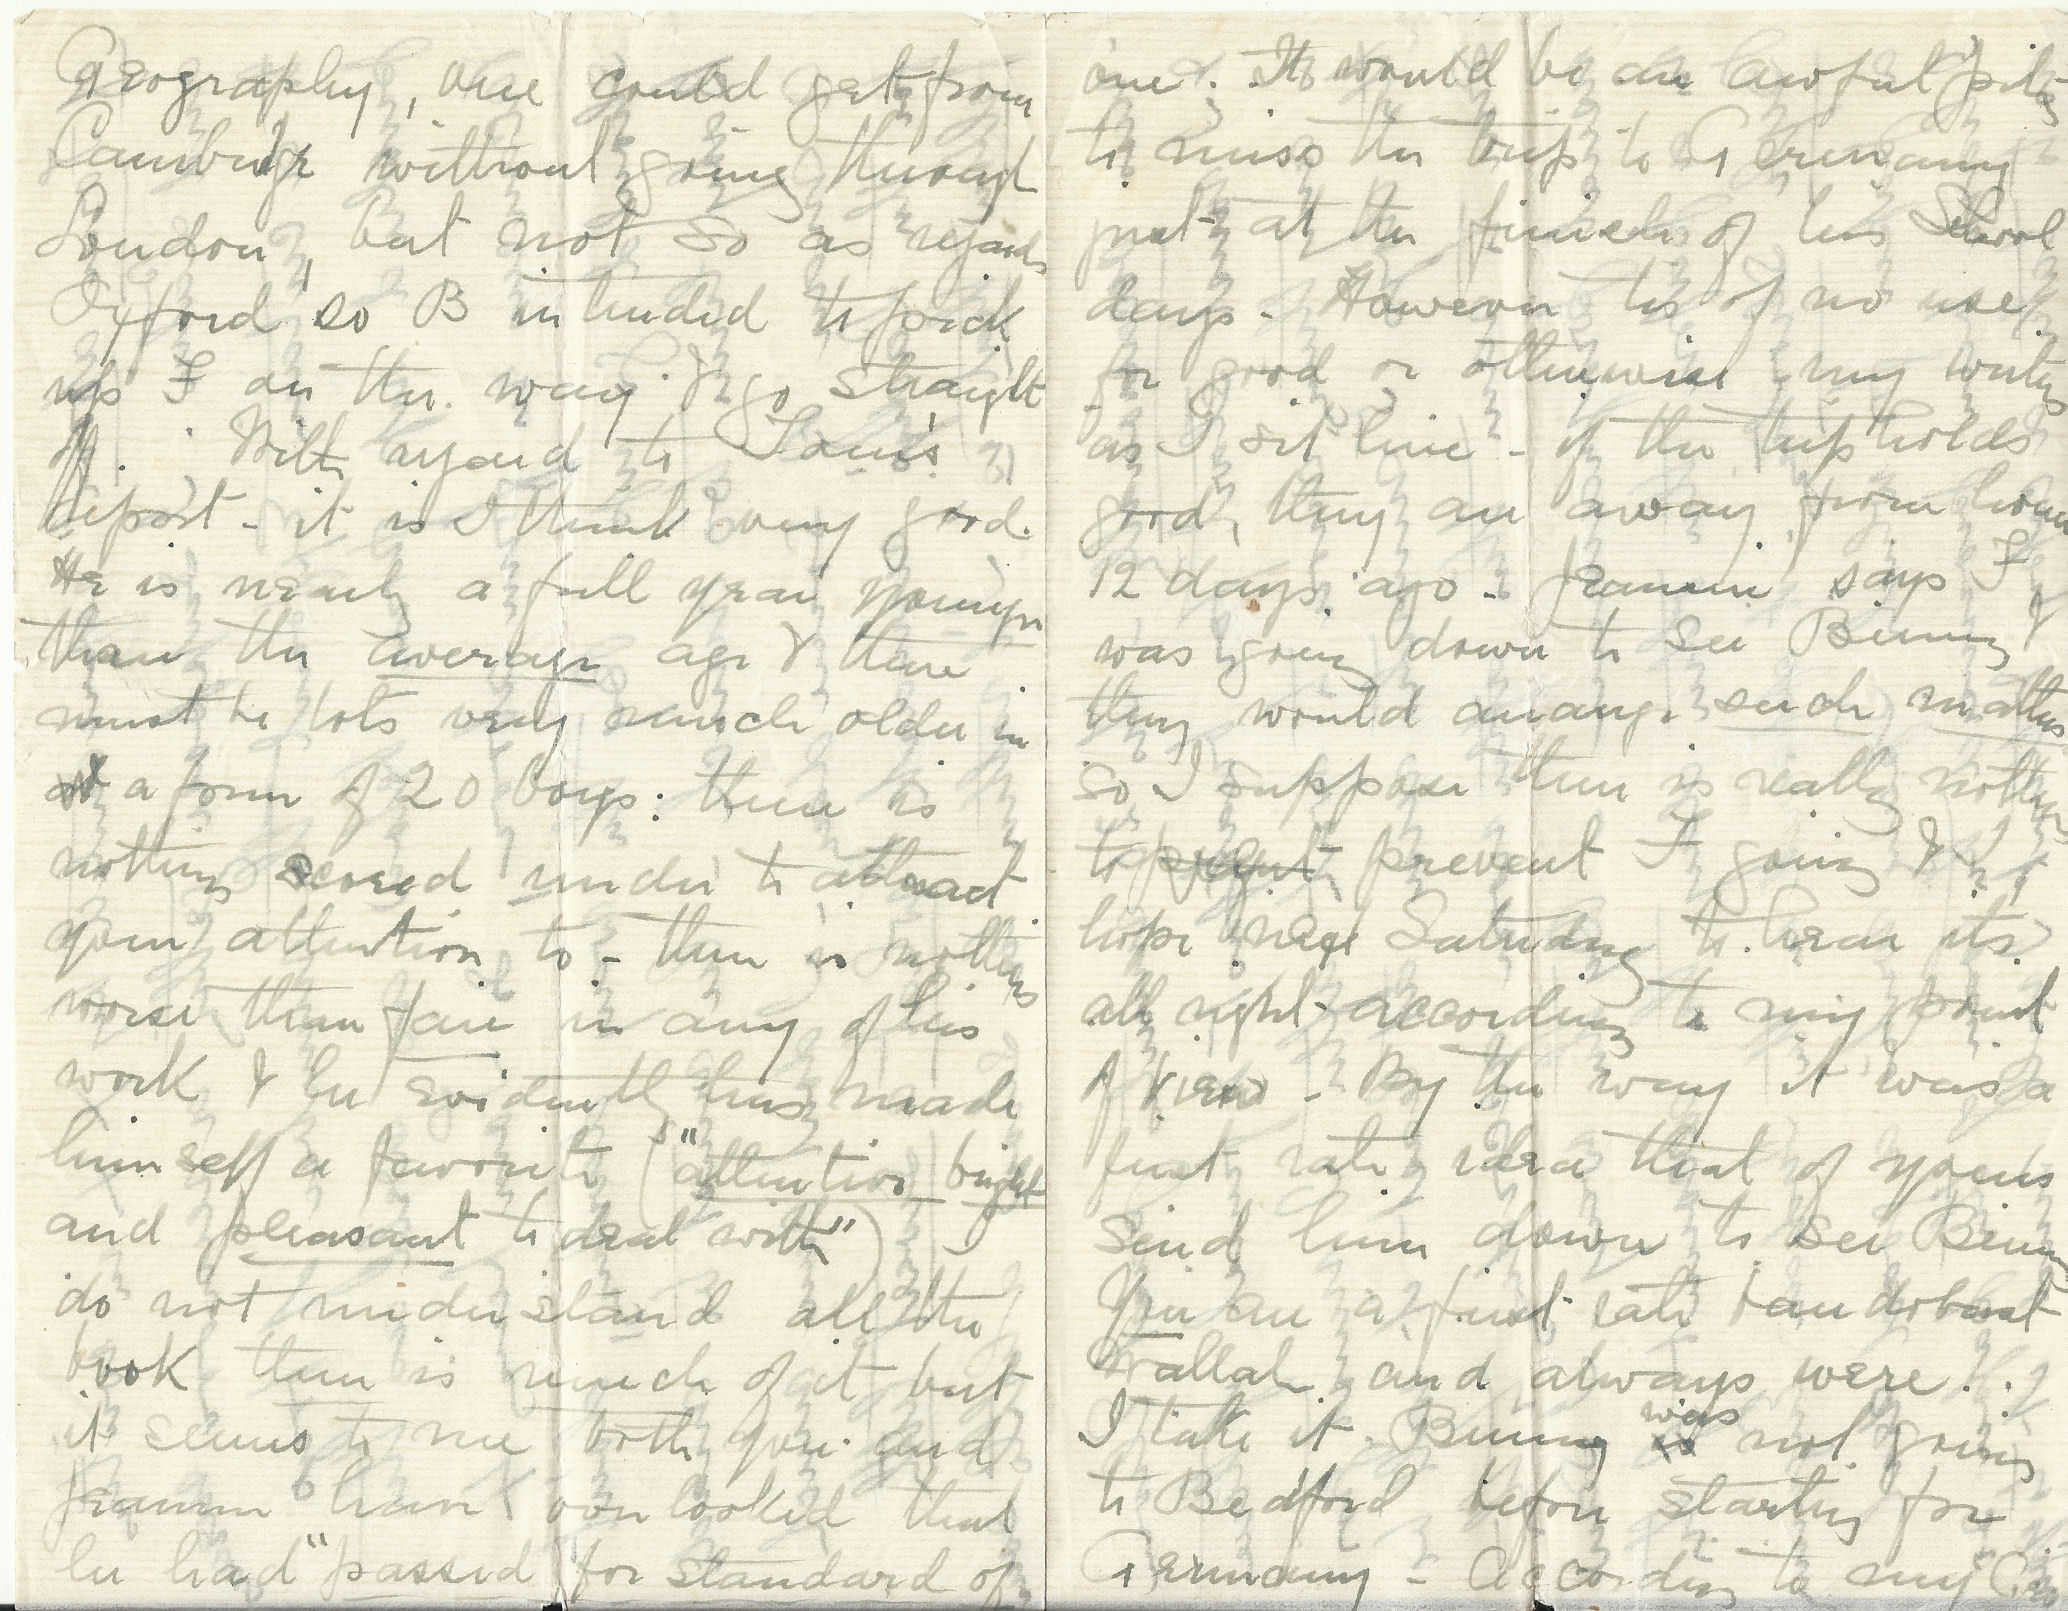 Geography, one could get from
Cambridge without going through
London, but not so as regards
Oxford so B intended to pick
up F on the way & go straight
off. With regard to Tom's
report - it is I think very good.
He is nearly a full year younger
than the average age & there
must be lots very much older in
a form of 20 boys: there is
nothing scored under to attract
your attention to - there is nothing
worse than fair in any of his
work & he evidently has made
himself a favorite ("attentive bright
and pleasant to deal with")
do not understand all the
book there is much of it but
it seems to me both you and
Jeannie have overlooked that
he had "passed for standard of
one. It would be an awful pity
to miss the trip to Germany
just at the finish of his School
days. However tis of no use
for good or otherwise my writing
as I sit here - if the trip holds
good, they are away from home
12 days ago - Jeannie says F
was going down to see Binny &
they would arrange such matters
so I suppose there is really nothing
to prevent F going & I
hope next Saturday to hear its
all right according to my point
of view - By the way it was a
first rate idea that of yours
send him down to see Binny
You are a first rate bandobast
wallah and always were!
I take it Binny was not going
to Bedford before starting for
Germany - According to my